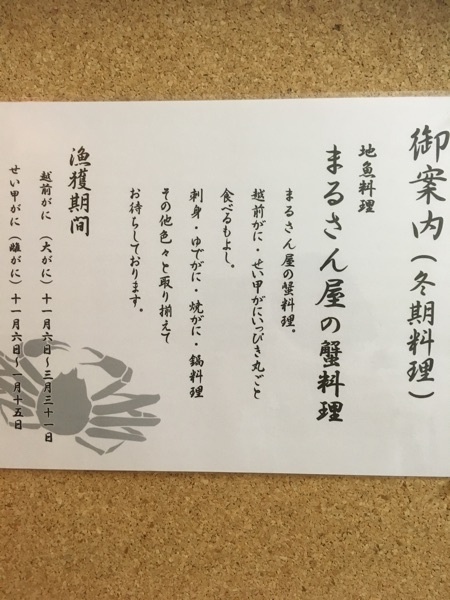 御案内(冬期料理)
地魚料理
まるさん屋の蟹料理
まるさん屋の蟹料理。
越前がに・せい甲がにいっぴき丸ごと
食べるもよし。
刺身・ゆでがに・焼がに・鍋料理
その他色々と取り揃えて
お待ちしております。
漁獲期間
越前がに (大がに)十一月六日~三月三十一日
せい甲がに(雌がに)十一月六日~一月十五日